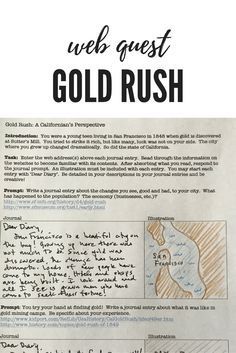 web quest
GOLD RUSH
Gold Rush: A Californian's Perspective
Introduction: You were a young teen living in San Francisco in 1848 when gold is discovered
at Sutter's Mill. You tried to strike it rich, but like many, luck was not on your side. The city
where you grew up changed dramatically. So did the state of California.
Task: Enter the web address(s) above each journal entry. Read through the information on
the websites to become familiar with its contents. After absorbing what you read, respond to
the journal prompt. An illustration must be included with each entry. You may start each
entry with "Dear Diary". Be detailed in your descriptions in your journal entries and be
creative!
Prompt: Write a journal entry about the changes you see, good and bad, to your city. What
has happened to the population? The economy (businesses, etc.)?
Journal
Illustration
Dear Diary,
San Francisco is a beautiful city on
the bay! Growing up here, there was
not much to do. Since gold was
discovered, the change has been
dramatic. Loads of new people have
come to my home. Hotels and shops
are being built. I look around and
all I see is green men who have
come to seek their fortune.
San
Francisco
Prompt: You try your hand at finding gold. Write a journal entry about what it was like in
gold mining camps. Be specific about your experience.
Journal
Illustration
Dear Diary,